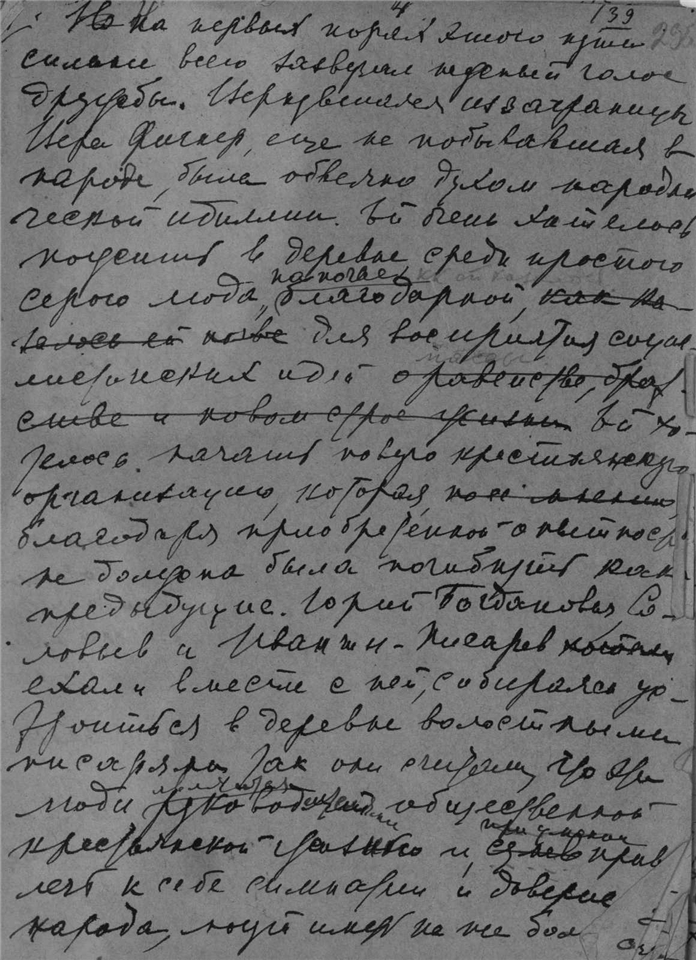 4 139
Но на первых порах этого пути
сильнее всего зазвучал нежный голос
дружбы. Вернувшаяся из заграницы
Вера Фигнер, еще не побывавшая в
народе, была обвеяна духом народни
ческой идиллии. Ей очень хотелось
пожить в деревне среди простого
серого люда, благодарной, как ка
залось ей почве для восприятия социа-
листических идей о равенстве, брат
стве и новом строе жизни. Ей хо-
телось начать новую крестьянскую
организацию, которая,
благодаря приобретенной опытности
не должна была погибнуть как
предыдущие. Юрий Богданович, Со-
ловьев и Иванчин-Писарев
ехали вместе с ней, собираясь ус-
троиться в деревне волостными
писарями, так как они считали, что эти
люди общественной
крестьянской жизнью и, прив
лечь к себе симпатии и доверие
народа, могут иметь на нее бол